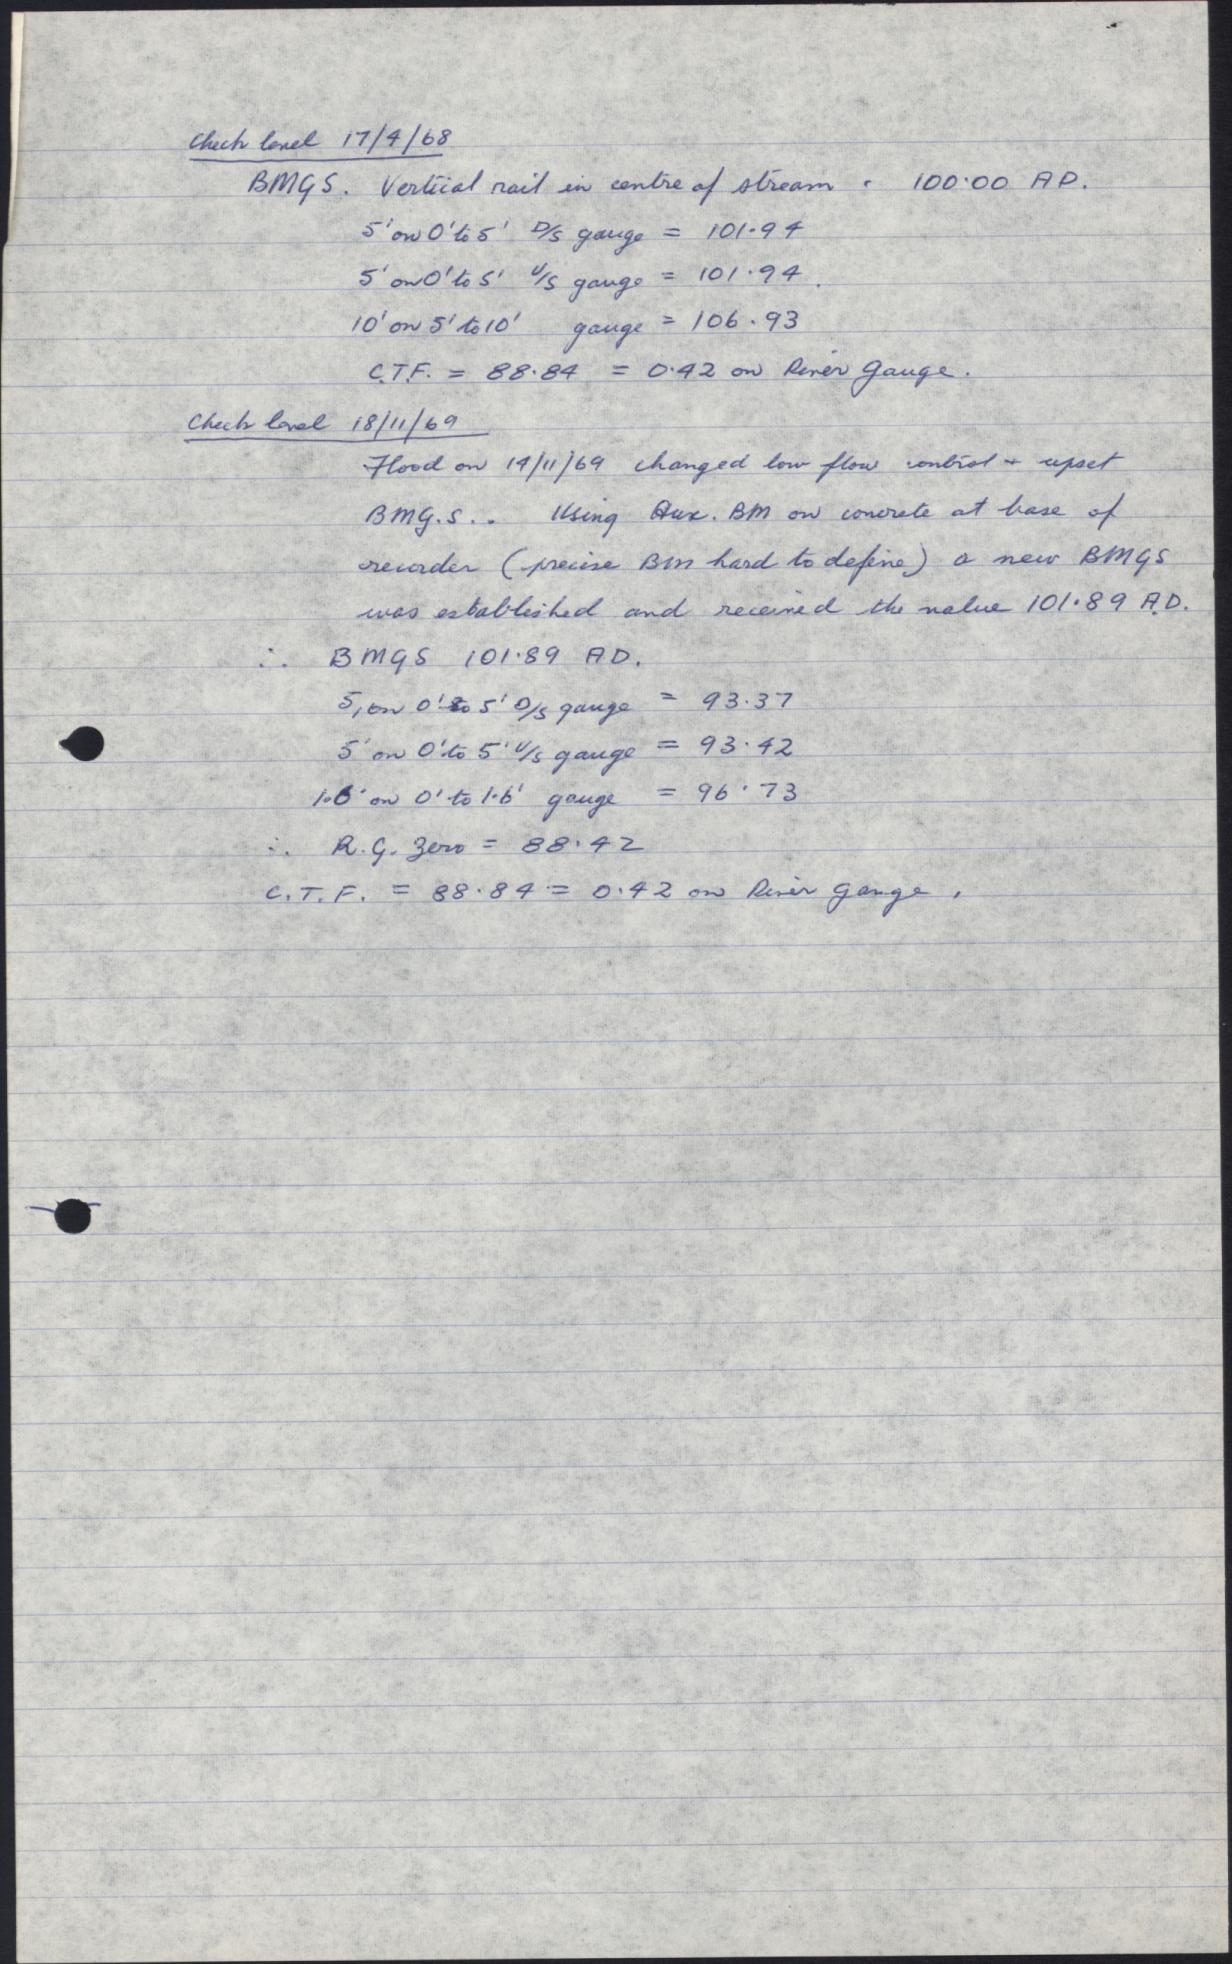 Check level 17/4/68
BMGS. Vertical rail in centre of stream = 100.00 AD.
5' on 0' to 5' D/S gauge = 101.94
5' on 0' to 5' U/S gauge = 101.94.
10' on 5' to 10' gauge = 106.93
C.T.F. = 88.84 = 0.42 on River Gauge.
Check level 18/11/69
Flood on 14/11/69 changed low flow control + upset
BMG.S.. Using Aux. BM on concrete at base of
recorder (precise BM hard to define) a new BMGS
was established and received the value 101.89 A.D.
∴ BMGS 101.89 AD.
5, on 0' to 5' D/S gauge = 93.37
5' on 0' to 5' U/S gauge = 93.42
1.6' on 0' to 1.6' gauge = 96.73
∴ R.G. Zero = 88.42
C.T.F. = 88.84 = 0.42 on River gauge.